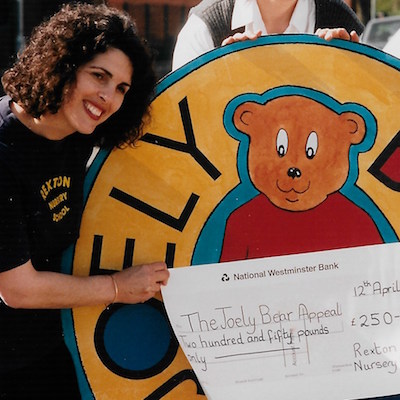 JOELY
REXTON
NURSERY
SCHOOL
National Westminster Bank
12th April
The Joely Bear Appeal
Two hundred and fifty pounds
£250-
only
Rexton
Nursery